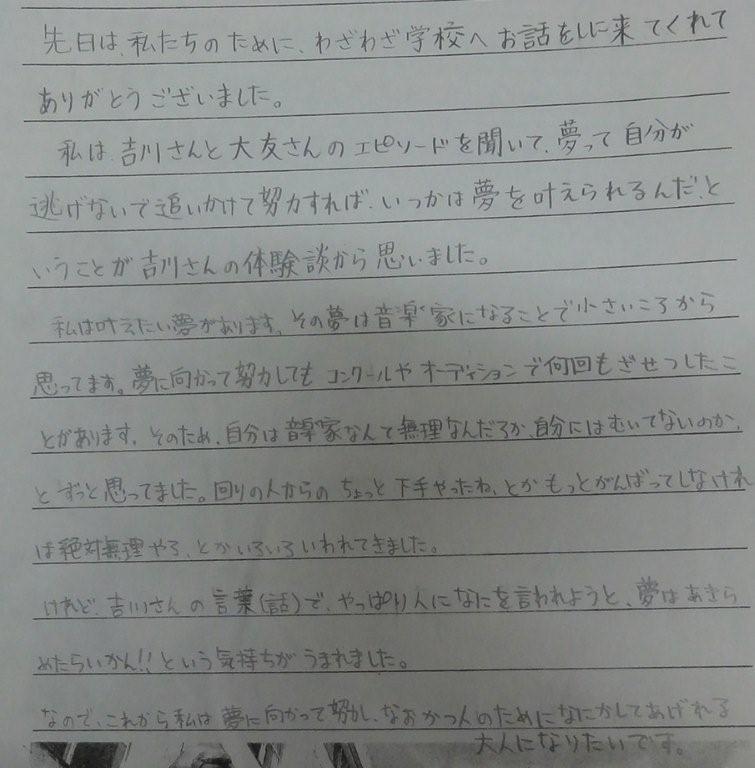 先日は、私たちのために、わざわざ学校へお話をしに来てくれて
ありがとうございました。
私は、吉川さんと大友さんのエピソードを聞いて、夢って自分が
逃げないで追いかけて努力すれば、いつかは夢を叶えられるんだ、と
いうことが吉川さんの体験談から思いました。
私は叶えたい夢があります。その夢は音楽家になることで小さいころから
思ってます。夢に向かって努力してもコンクールやオーディションで何回もざせつしたこ
とがあります。そのため、自分は音楽家なんて無理なんだろか、自分にはむいてないのか、
とずっと思ってました。回りの人からのちょっと下手やったね、とかもっとがんばってしなけれ
は絶対無理やろ、とかいろいろいわれてきました。
けれど、吉川さんの言葉(話)で、やっぱり人になにを言われようと、夢はあきら
めたらいかん!!という気持ちがうまれました。
なので、これから私は夢に向かって努力し、なおかつ人のためになにかしてあげれる
大人になりたいです。